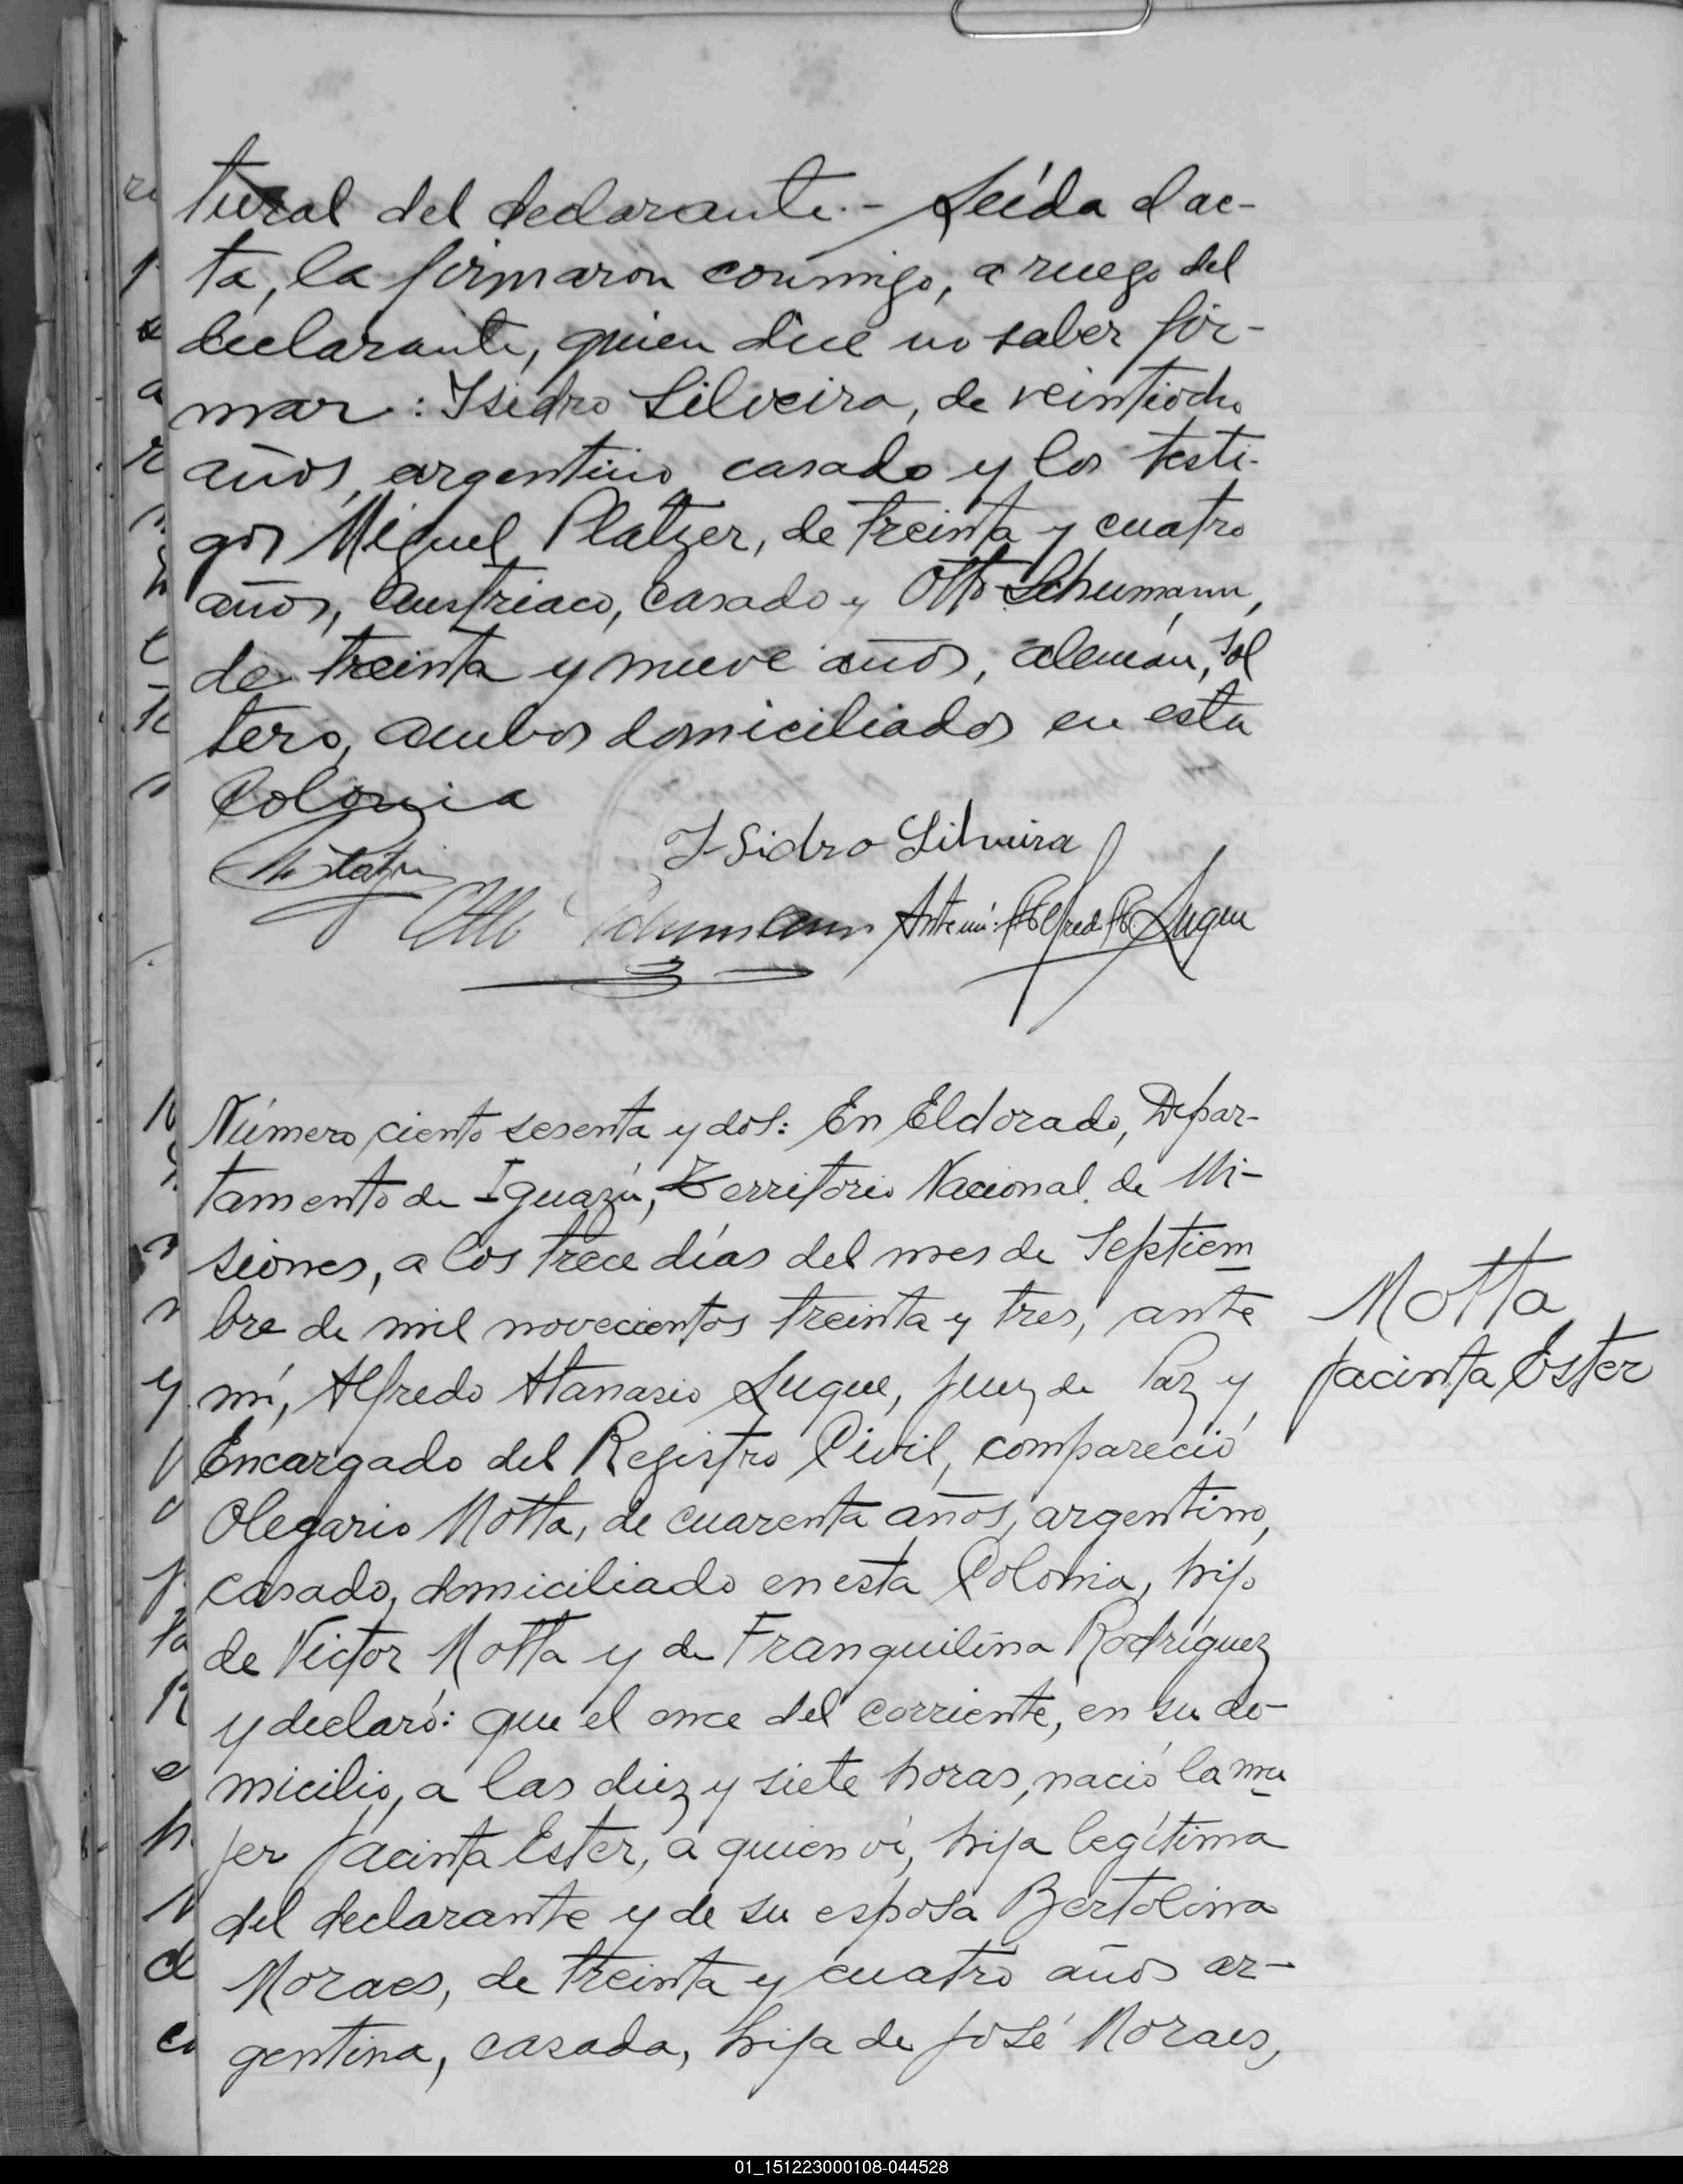 tural del declarante.- Leída el ac-
ta, la firmaron conmigo, a ruego del
declarante, quien dice no saber fir-
mar: Isidro Silveira, de veintiocho
años, argentino casado y los testi-
gos Miguel Platzer, de treinta y cuatro
años, austriaco, casado y Otto Schumann,
de treinta y nueve años, alemán, sol
tero, ambos domiciliados en esta
Colonia
Isidro Silveira
Otto Schumann Ante mí: Alfredo A. Luque
Número ciento sesenta y dos: En Eldorado, Depar-
tamento de Iguazú, Territorio Nacional de Mi-
siones, a los trece días del mes de Septiem
bre de mil novecientos treinta y tres, ante
mí, Alfredo Atanasio Luque, Juez de Paz y
Encargado del Registro Civil, compareció
Olegario Motta, de cuarenta años, argentino,
casado, domiciliado en esta Colonia, hijo
de Victor Motta y de Franquilina Rodríguez
y declaró: que el once del corriente, en su do-
micilio, a las diez y siete horas, nació la mu
jer Jacinta Ester, a quien ví, hija legítima
del declarante y de su esposa Bertolina
Moraes, de treinta y cuatro años ar-
gentina, casada, hija de José Moraes,
Motta
Jacinta Ester
01_151223000108-044528